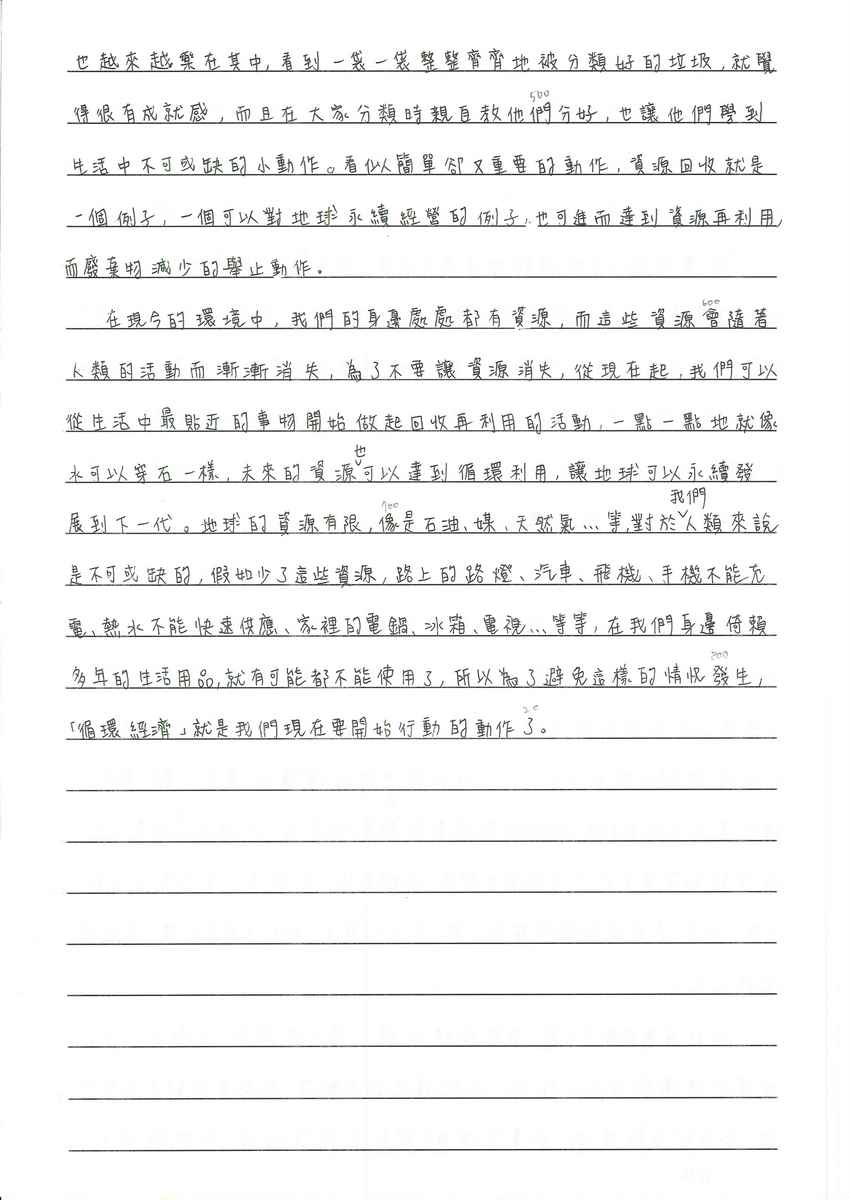 也越來越樂在其中,看到一袋一袋整整齊齊地被分類好的垃圾,就覺
500
得很有成就感,而且在大家分類時親自教他們分好,也讓他們學到
生活中不可或缺的小動作。看似簡單卻又重要的動作,資源回收就是
一個例子,一個可以對地球永續經營的例子,也可進而達到資源再利用,
而廢棄物減少的舉止動作。
600
在現今的環境中,我們的身邊處處都有資源,而這些資源會隨著
人類的活動而漸漸消失,為了不要讓資源消失,從現在起,我們可以
從生活中最貼近的事物開始做起回收再利用的活動,一點一點地就像
水可以穿石一樣,未來的資源也可以達到循環利用,讓地球可以永續發
700
展到下一代。地球的資源有限,像是石油、媒、天然氣...等,對於我們人類來說
是不可或缺的,假如少了這些資源,路上的路燈、汽車、飛機、手機不能充
電、熱水不能快速供應、家裡的電鍋、冰箱、電視...等等,在我們身邊倚賴
800
多年的生活用品,就有可能都不能使用了,所以為了避免這樣的情況發生,
20
「循環經濟」就是我們現在要開始行動的動作了。